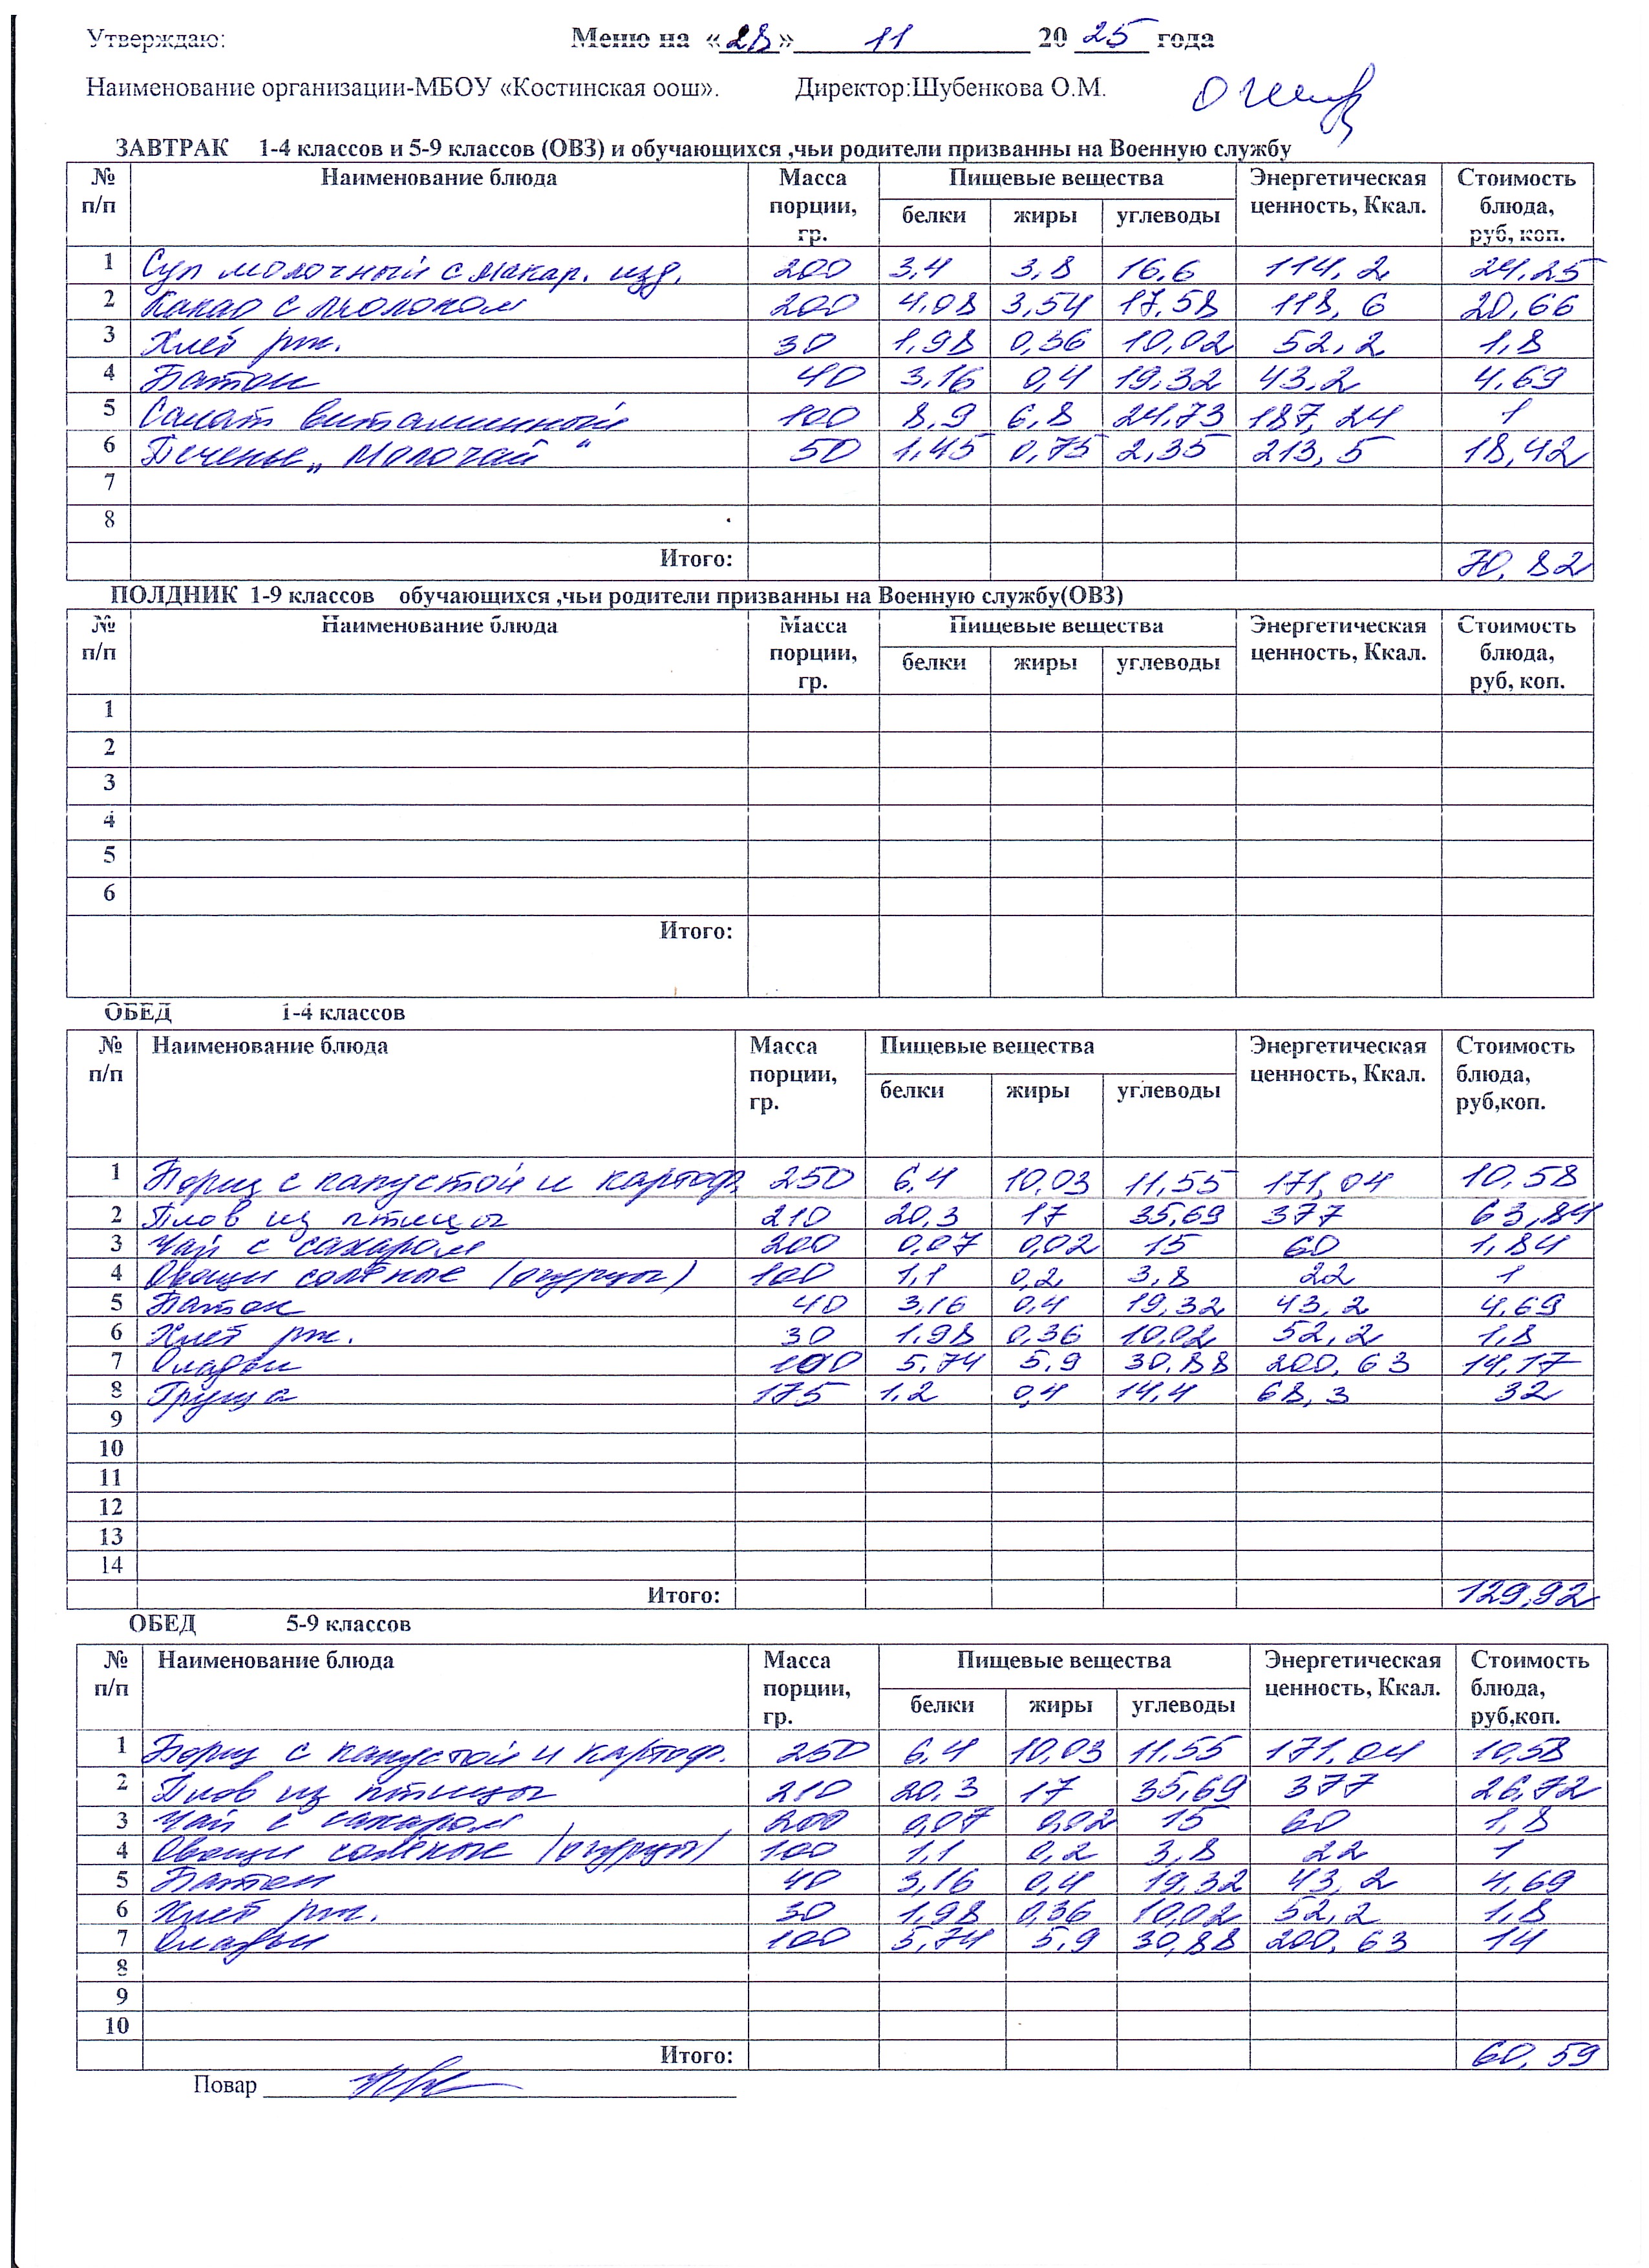 Утверждаю: Меню на «28» 11 20 25 года
Наименование организации-МБОУ «Костинская оош». Директор:Шубенкова О.М.
ЗАВТРАК 1-4 классов и 5-9 классов (ОВЗ) и обучающихся ,чьи родители призванны на Военную службу
№ п/п Наименование блюда Масса порции, гр. Пищевые вещества Энергетическая ценность, Ккал. Стоимость блюда, руб, коп.
белки жиры углеводы
1 Суп молочный с макар. изд. 200 3,4 3,8 16,6 114,2 24,25
2 Какао с молоком 200 4,08 3,54 17,58 118,6 20,66
3 Хлеб рж. 30 1,98 0,36 10,02 52,2 1,8
4 Батон 40 3,16 0,4 19,32 43,2 4,69
5 Салат витаминный 100 8,9 6,8 24,73 187,24 1
6 Печенье „Молочай“ 50 1,45 0,75 2,35 213,5 18,42
7
8
Итого: 70,82
ПОЛДНИК 1-9 классов обучающихся ,чьи родители призванны на Военную службу(ОВЗ)
№ п/п Наименование блюда Масса порции, гр. Пищевые вещества Энергетическая ценность, Ккал. Стоимость блюда, руб, коп.
белки жиры углеводы
1
2
3
4
5
6
Итого:
ОБЕД 1-4 классов
№ п/п Наименование блюда Масса порции, гр. Пищевые вещества Энергетическая ценность, Ккал. Стоимость блюда, руб,коп.
белки жиры углеводы
1 Борщ с капустой и картоф. 250 6,4 10,03 11,55 171,04 10,58
2 Плов из птицы 210 20,3 17 35,69 377 63,84
3 Чай с сахаром 200 0,07 0,02 15 60 1,84
4 Овощи солёные (огурцы) 100 1,1 0,2 3,8 22 1
5 Батон 40 3,16 0,4 19,32 43,2 4,69
6 Хлеб рж. 30 1,98 0,36 10,02 52,2 1,8
7 Оладьи 100 5,74 5,9 30,88 200,63 14,17
8 Груша 175 1,2 0,4 14,4 68,3 32
9
10
11
12
13
14
Итого: 129,92
ОБЕД 5-9 классов
№ п/п Наименование блюда Масса порции, гр. Пищевые вещества Энергетическая ценность, Ккал. Стоимость блюда, руб,коп.
белки жиры углеводы
1 Борщ с капустой и картоф. 250 6,4 10,03 11,55 171,04 10,58
2 Плов из птицы 210 20,3 17 35,69 377 26,72
3 Чай с сахаром 200 0,07 0,02 15 60 1,8
4 Овощи солёные (огурцы) 100 1,1 0,2 3,8 22 1
5 Батон 40 3,16 0,4 19,32 43,2 4,69
6 Хлеб рж. 30 1,98 0,36 10,02 52,2 1,8
7 Оладьи 100 5,74 5,9 30,88 200,63 14
8
9
10
Итого: 60,59
Повар